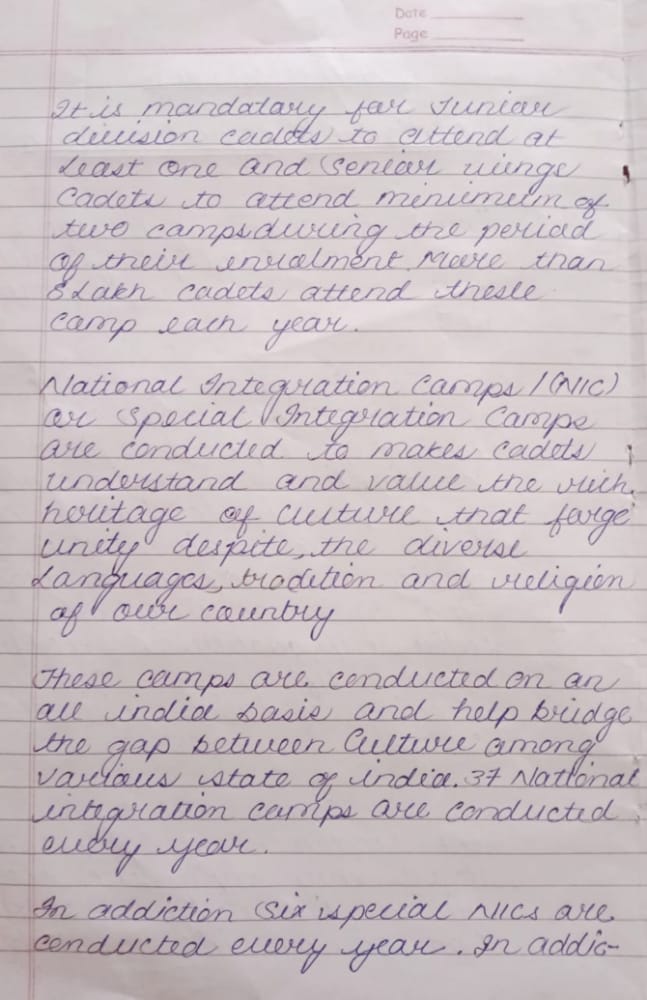 Date
Page
It is mandatary for Juniar
division cadets to attend at
least one and Seniar wings
Cadets to attend minimum of
two camps during the period
of their enrolment. More than
8 Lakh cadets attend these
camp each year.
National Integration Camps / (NIC)
or Special Integration Camps
are conducted to makes cadets
understand and value the rich
heritage of culture that forge
unity despite, the diverse
Languages, tradition and religion
of our country
These camps are conducted on an
all india basis and help bridge
the gap between Culture among
various state of india. 37 National
integration camps are conducted
every year.
In addiction Six special NICs are
conducted every year. In addic-